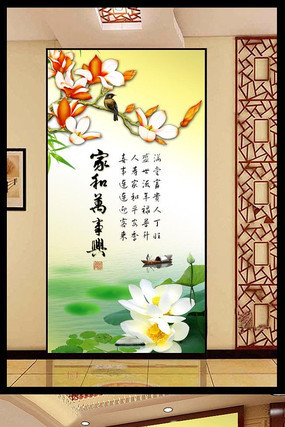 滿堂富貴人丁旺
盛世流年福壽升
人壽家和平安季
喜事連連迎客來
家和萬事興